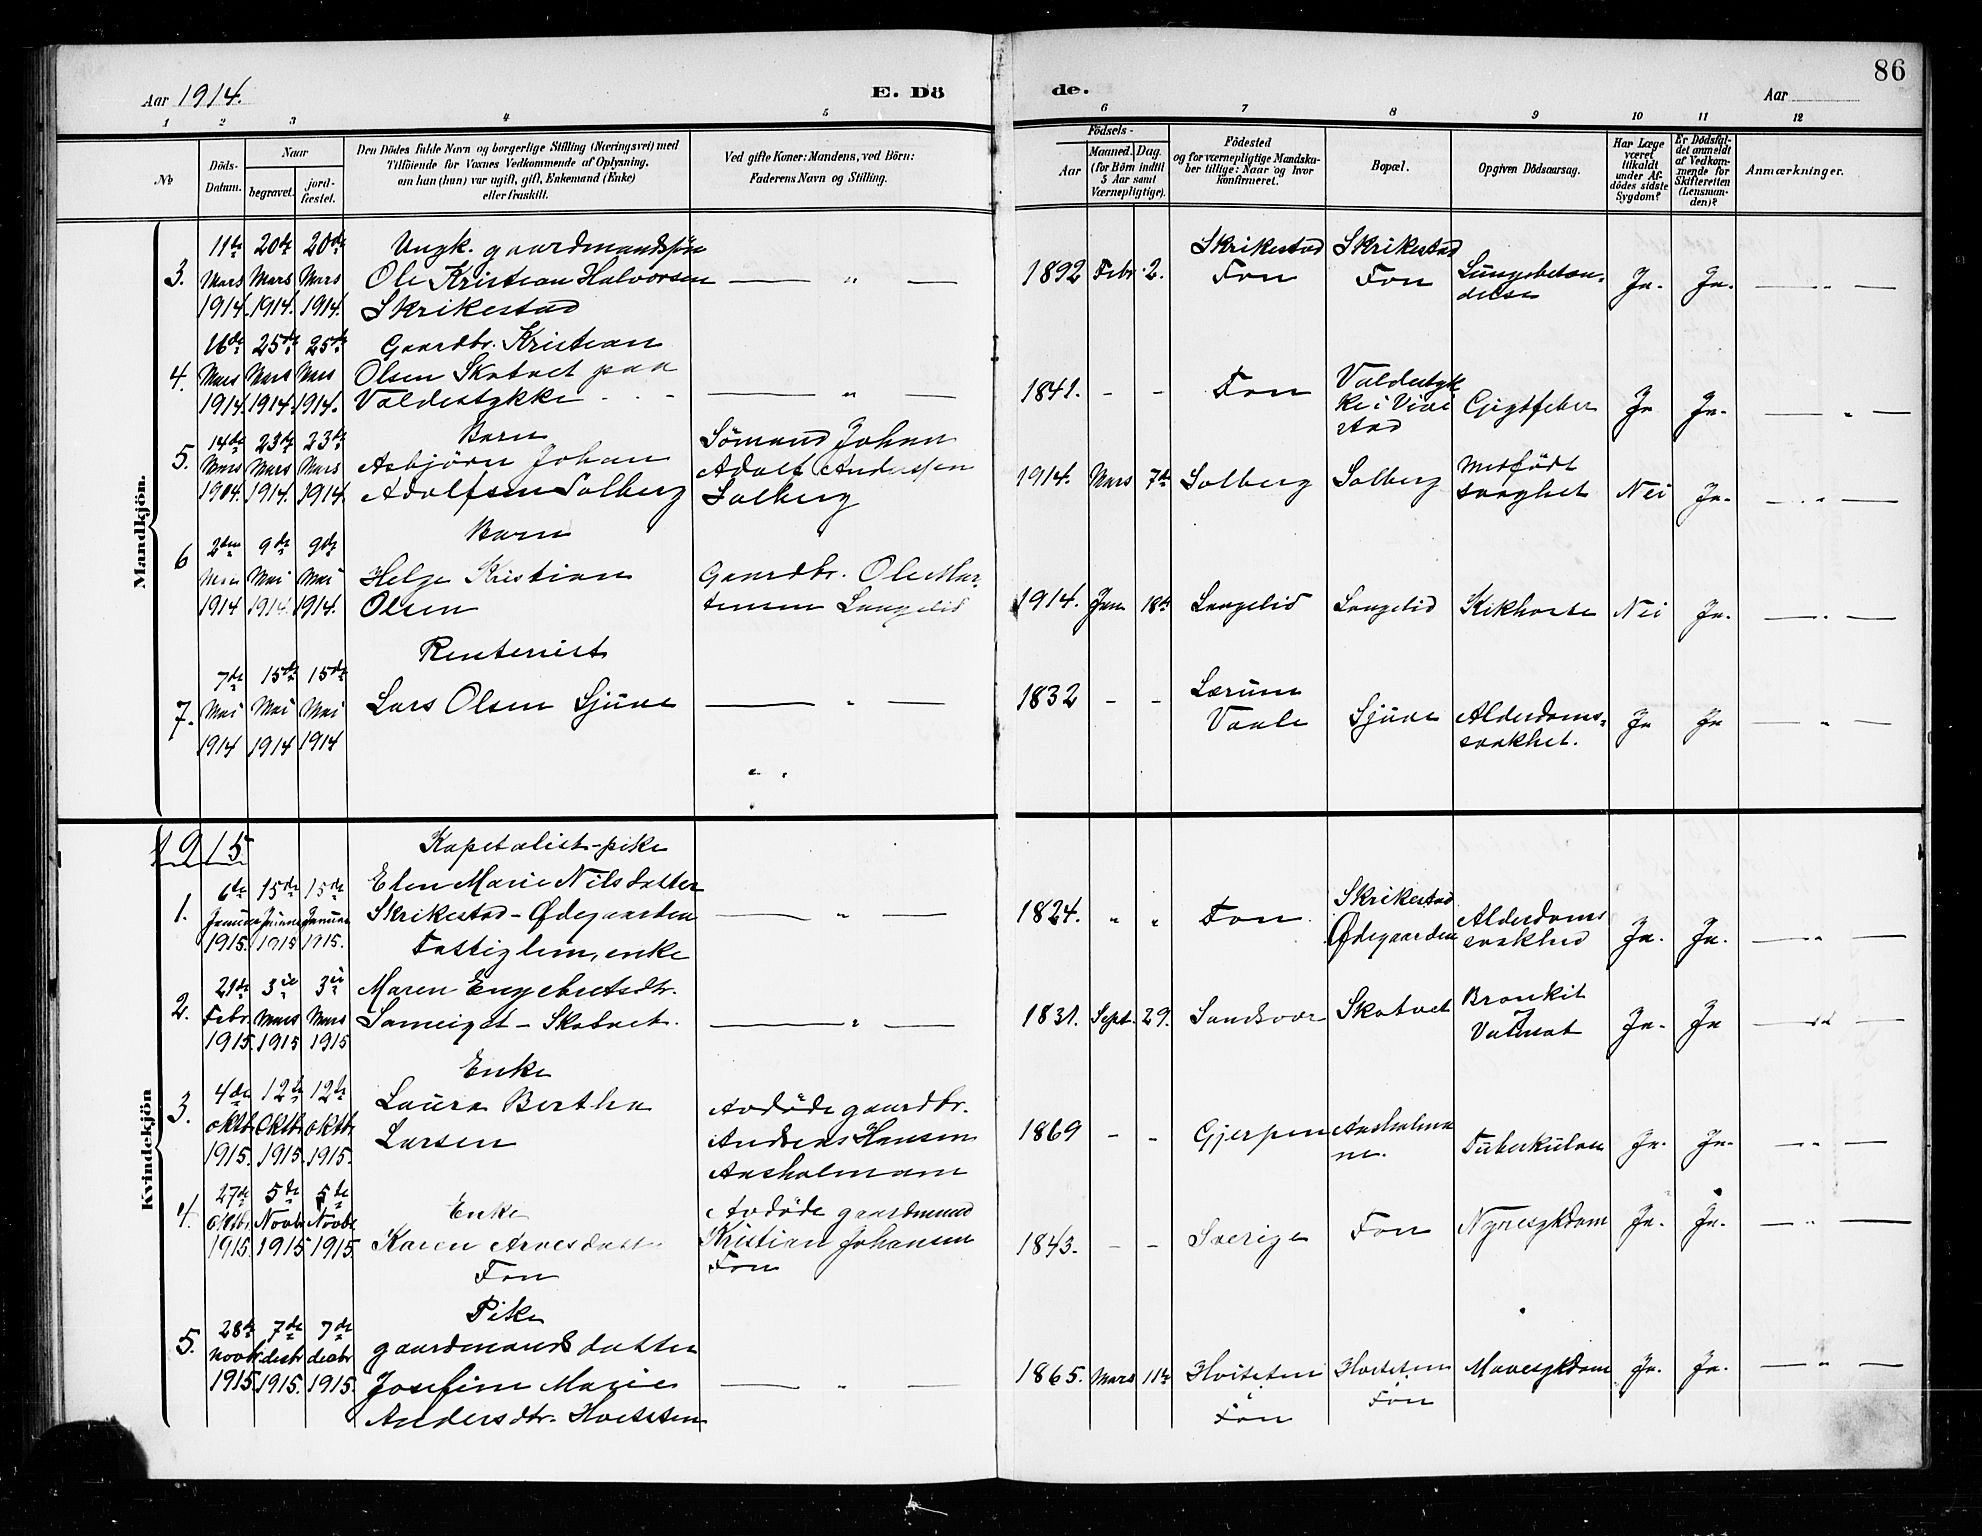 86
Aar 1914.
E. Dö
de.
Aar
1 2 3 4 5 6 7 8 9 10 11 12
No
Döds-
Datum.
Naar
begravet.
jord-
fæstet.
Den Dödes fulde Navn og borgerlige Stilling (Næringsvei) med
Tilföiende for Voxnes Vedkommende af Oplysning,
om han (hun) var ugift, gift, Enkemand (Enke)
eller fraskilt.
Ved gifte Koner: Mandens, ved Börn:
Faderens Navn og Stilling.
Födsels-
Aar
Maaned. Dag.
(for Börn indtil
5 Aar samt
Værnepligtige).
Födested
og for værnepligtige Mandska-
ber tillige: Naar og hvor
konfirmeret.
Bopæl.
Opgiven Dödsaarsag.
Har Læge
været
tilkaldt
under Af-
dödes sidste
Sygdom?
Er Dödsfal-
det anmeldt
af Vedkom-
mende for
Skifteretten
(Lensman-
den)?
Anmærkninger.
Mandkjön.
3. 11te Mars 1914. 20de Mars 1914. 20de Mars 1914.
Ungk. gaardmandssøn
Ole Kristian Halvorsen
Skrikestad
— " —
1892 Febr. 2.
Skrikestad
Fon
Skrikestad
Fon
Lungebetæn-
delse
Ja. Ja. — " —
4. 16de Mars 1914. 25de Mars 1914. 25de Mars 1914.
Gaardbr. Kristian
Olsen Skatvet paa
Valdestykke
— " —
1841. - - Fon
Valdestyk
ke i Vivi
stad
Gigtfeber
Ja Ja. — " —
5. 14de Mars 1914. 23de Mars 1914. 23de Mars 1914.
Barn
Asbjørn Johan
Adolfsen Solberg
Sømand Johan
Adolf Anderssen
Solberg
1914. Mars 7de Solberg Solberg
Medfødt
svaghet
Nei Ja. — " —
6 2den Mai 1914 9de Mai 1914. 9de Mai 1914.
Barn
Helge Kristian
Olsen
Gaardbr. Ole Mar-
tinsen Langelid
1914. Jan. 18de Langelid Langelid Kikhoste Nei Ja. — " —
7. 7de Mai 1914 15de Mai 1914 15de Mai 1914
Rentenist
Lars Olsen Sjüve
— " —
1832 - -
Lærum
Vaale
Sjüve
Alderdoms-
svakhet.
Ja Ja — " —
1915
Kvindekjön
1. 6te Januar 1915. 15de Januar 1915 15de Januar 1915.
Kapitalist-pike
Elen Marie Nilsdatter
Skrikestad-Ødegaarden
— " —
1824. " " Fon.
Skrikestad
Ødegaarden
Alderdoms
svakhed
Ja. Ja. — " —
2. 21de Febr. 1915. 3die Mars 1915 3die Mars 1915
Fattiglem, enke
Maren Engebretsdtr.
Sameiget - Skatvet.
— " —
1831. Sept. 29. Sandsvær Skatvet
Bronkit
Ja. Ja — " —
3. 4de Oktbr 1915. 12te Oktbr 1915. 12te Oktbr 1915.
Enke
Laura Bertha
Larsen
Avdøde gaardbr.
Andreas Hansen
Aasholmam
1869 - - Gjerpen
Aasholma
ne.
Tuberkulose
Ja. Ja. — " —
4. 27de Oktbr. 1915. 5te Novbr 1915 5te Novbr 1915
Enke
Karen Arnesdatt
Fon
Avdøde gaardmand
Kristian Johansen
Fon
1843. - - Sverige Fon Nyresykdom Ja. Ja. — " —
5. 28de Novbr 1915. 7de desbr 1915. 7de desbr 1915.
Pike
gaardmands datter
Josefine Marie
Andersdtr. Hvitsten
— " —
1865. Mars 11te
Hvitsten
i
Fon
Hvitsten
Fon
Mavesykdom Ja. Ja. — " —